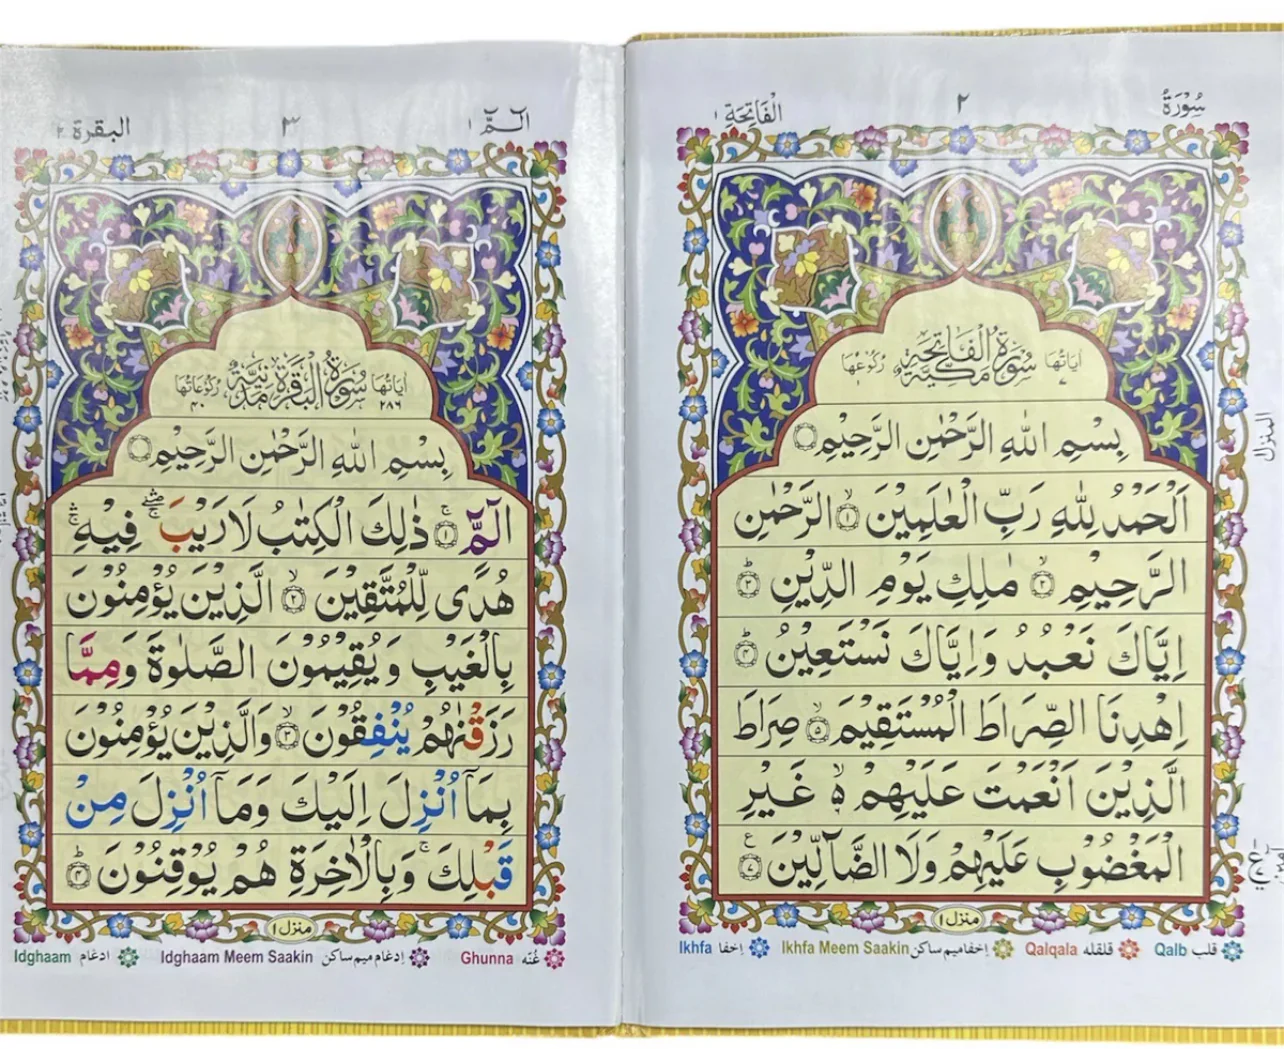 سُوْرَةُ ٢ الْفَاتِحَةِ ١
سُوْرَةُ الْفَاتِحَةِ مَكِّيَّةٌ
اٰيَاتُهَا ٧
رُكُوْعُهَا ١
بِسْمِ اللّٰهِ الرَّحْمٰنِ الرَّحِيْمِ ۝
اَلْحَمْدُ لِلّٰهِ رَبِّ الْعٰلَمِيْنَ ۙ﴿١﴾ الرَّحْمٰنِ
الرَّحِيْمِ ۙ﴿٢﴾ مٰلِكِ يَوْمِ الدِّيْنِ ؕ﴿٣﴾
اِيَّاكَ نَعْبُدُ وَاِيَّاكَ نَسْتَعِيْنُ ؕ﴿٤﴾
اِهْدِنَا الصِّرَاطَ الْمُسْتَقِيْمَ ۙ﴿٥﴾ صِرَاطَ
الَّذِيْنَ اَنْعَمْتَ عَلَيْهِمْ ۙ۵ غَيْرِ
الْمَغْضُوْبِ عَلَيْهِمْ وَلَا الضَّآلِّيْنَ ﴿٧﴾ ع
منزل ١
المنزل
قلب Qalb
قلقله Qalqala
إخفا ميم ساكن Ikhfa Meem Saakin
إخفا Ikhfa
الٓمّٓ ١ ٣ البقرة ٢
سُوْرَةُ الْبَقَرَةِ مَدَنِيَّةٌ
اٰيَاتُهَا ٢٨٦
رُكُوْعَاتُهَا ٤٠
بِسْمِ اللّٰهِ الرَّحْمٰنِ الرَّحِيْمِ ۝
الٓمّٓ ۚ﴿١﴾ ذٰلِكَ الْكِتٰبُ لَا رَيْبَ ۛۖۚ فِيْهِ ۛۚ
هُدًى لِّلْمُتَّقِيْنَ ۙ﴿٢﴾ الَّذِيْنَ يُؤْمِنُوْنَ
بِالْغَيْبِ وَيُقِيْمُوْنَ الصَّلٰوةَ وَمِمَّا
رَزَقْنٰهُمْ يُنْفِقُوْنَ ۙ﴿٣﴾ وَالَّذِيْنَ يُؤْمِنُوْنَ
بِمَآ اُنْزِلَ اِلَيْكَ وَمَآ اُنْزِلَ مِنْ
قَبْلِكَ ۚ وَبِالْاٰخِرَةِ هُمْ يُوْقِنُوْنَ ؕ﴿٤﴾
منزل ١
غُنّه Ghunna
إدغام ميم ساكن Idghaam Meem Saakin
ادغام Idghaam